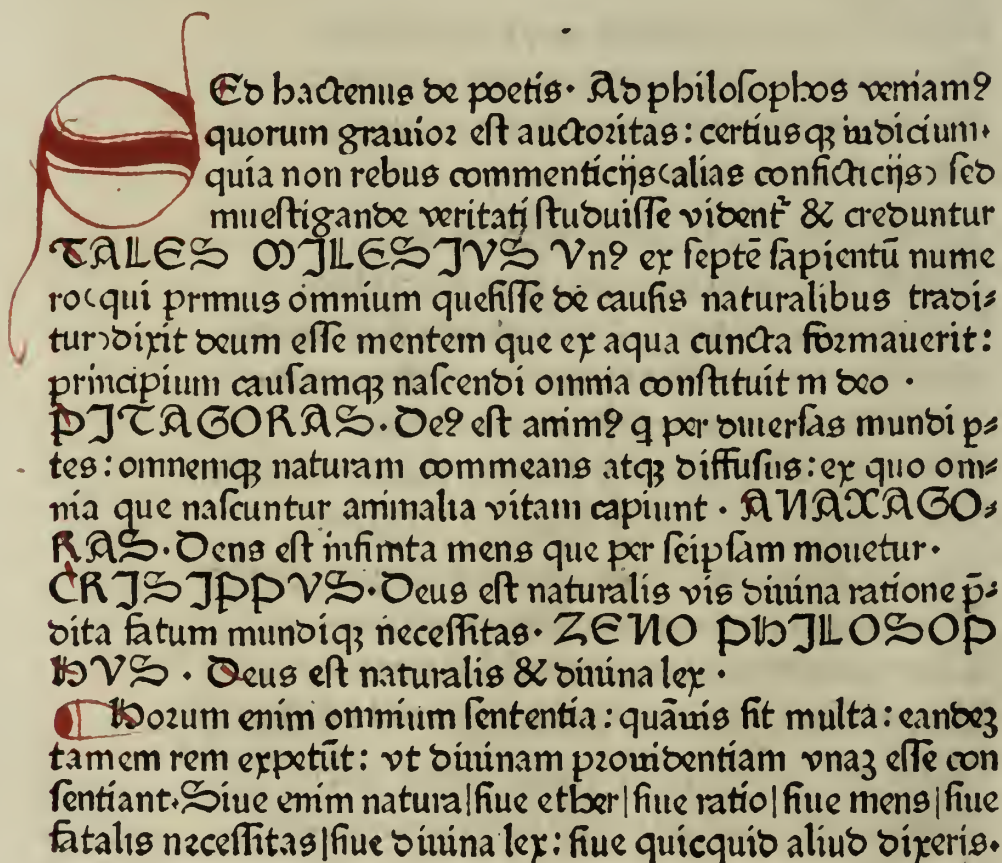 SEd hactenus de poetis. Ad philosophos veniamꝰ
quorum grauior est auctoritas: certiusqꝫ iudicium.
quia non rebus commenticijs(alias conficticijs) sed
inuestigande veritati studuisse vident᷑ & creduntur
TALES MILESIVS Vnꝰ ex septē sapientū nume
ro(qui primus omnium quesisse de causis naturalibus tradi⸗
tur)dixit deum esse mentem que ex aqua cuncta formauerit:
principium causamqꝫ nascendi omnia constituit in deo .
PITAGORAS. Deꝰ est animꝰ q per diuersas mundi p⸗
tes: omnemqꝫ naturam commeans atqꝫ diffusus: ex quo om⸗
nia que nascuntur animalia vitam capiunt . ANAXAGO⸗
RAS. Deus est infinita mens que per seipsam mouetur.
CRISIPPVS. Deus est naturalis vis diuina ratione p̄⸗
dita fatum mundiqꝫ necessitas. ZENO PHILOSOP
HVS . Deus est naturalis & diuina lex .
Horum enim omnium sententia: quāuis sit multa: eandeꝫ
tamem rem expetūt: vt diuinam prouidentiam vnaꝫ esse con
sentiant. Siue enim natura|siue ether|siue ratio|siue mens|siue
fatalis necessitas|siue diuina lex: siue quicquid aliud dixeris.